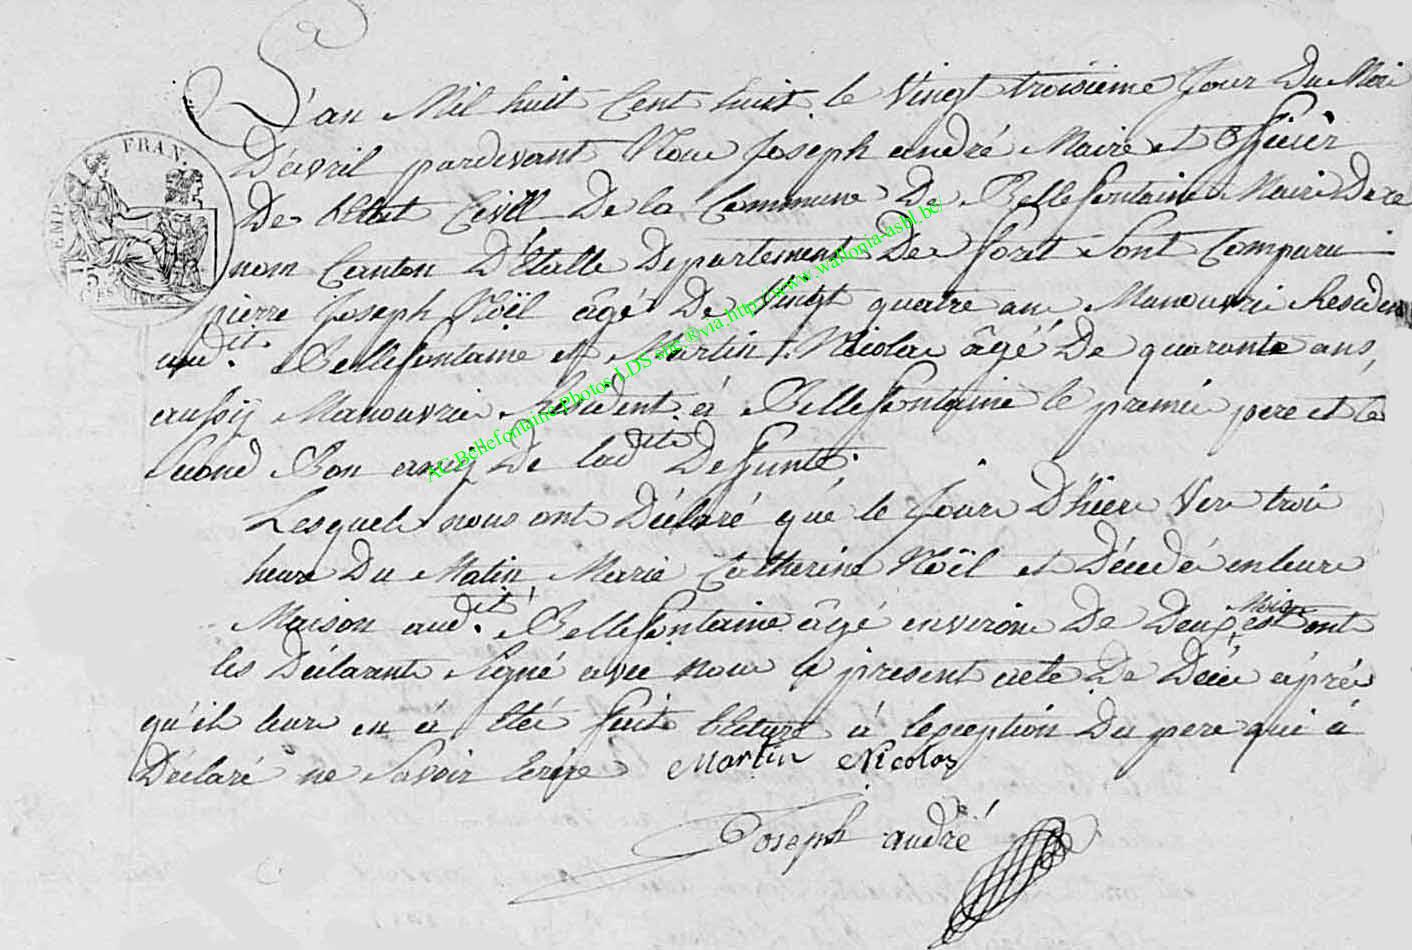 L'an Mil huit Cent huit le Vingt troisieme Jour Du Moi
D'avril pardevant Nou Joseph andré Maire et Officier
De L'Etat Civill De la Commune De Bellefontaine Mairi De ce
nom Canton D'Etalle Departement De foret Sont Comparu
pierre Joseph Noël âgé De Vingt quatre an Manouvrie Residen
aud.it Bellefontaine et Martin Nicolas âgé De quarante ans,
aussÿ Manouvrie Resident à Bellefontaine le premié pere et le
Second Bon amij De lad.ite Defunte.
Lesquele nous ont Déclaré qué le Jour D'hiere Ver troi
heure Du Matin Marie Catherine Noël et Décedé en leure
Maison aud.it Bellefontaine âgé environ De Deux Moi est ont
les Déclarant Signé avec nou le present acte De Décé aprés
qu'il leur en à Eté fait Lecture à l'exception Du pere qui à
Déclaré ne Savoir Ecrire Martin Nicolas
Joseph andré
EMP. FRAN.
75
AC Bellefontaine Photos LDS site ®via http://www.wallonia-asbl.be/